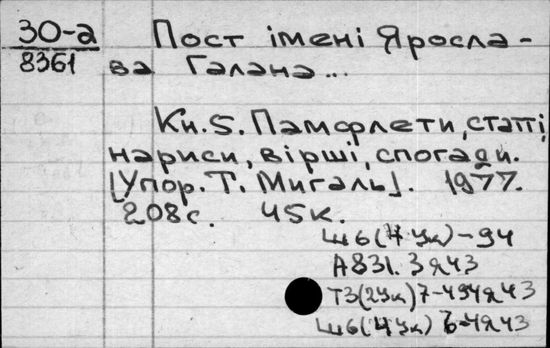 30-а
8361
Пост імені Яросла-
ва Галана...
Кн.5. Памфлети, статті,
нариси, вірші, спогади.
[Упор. Т. Мигаль]. 1977.
208с. 45к.
Ш6(4Ук)-94
А831.3я43
Т3(2Ук)7-494я43
Ш6(4Ук)6-4я43